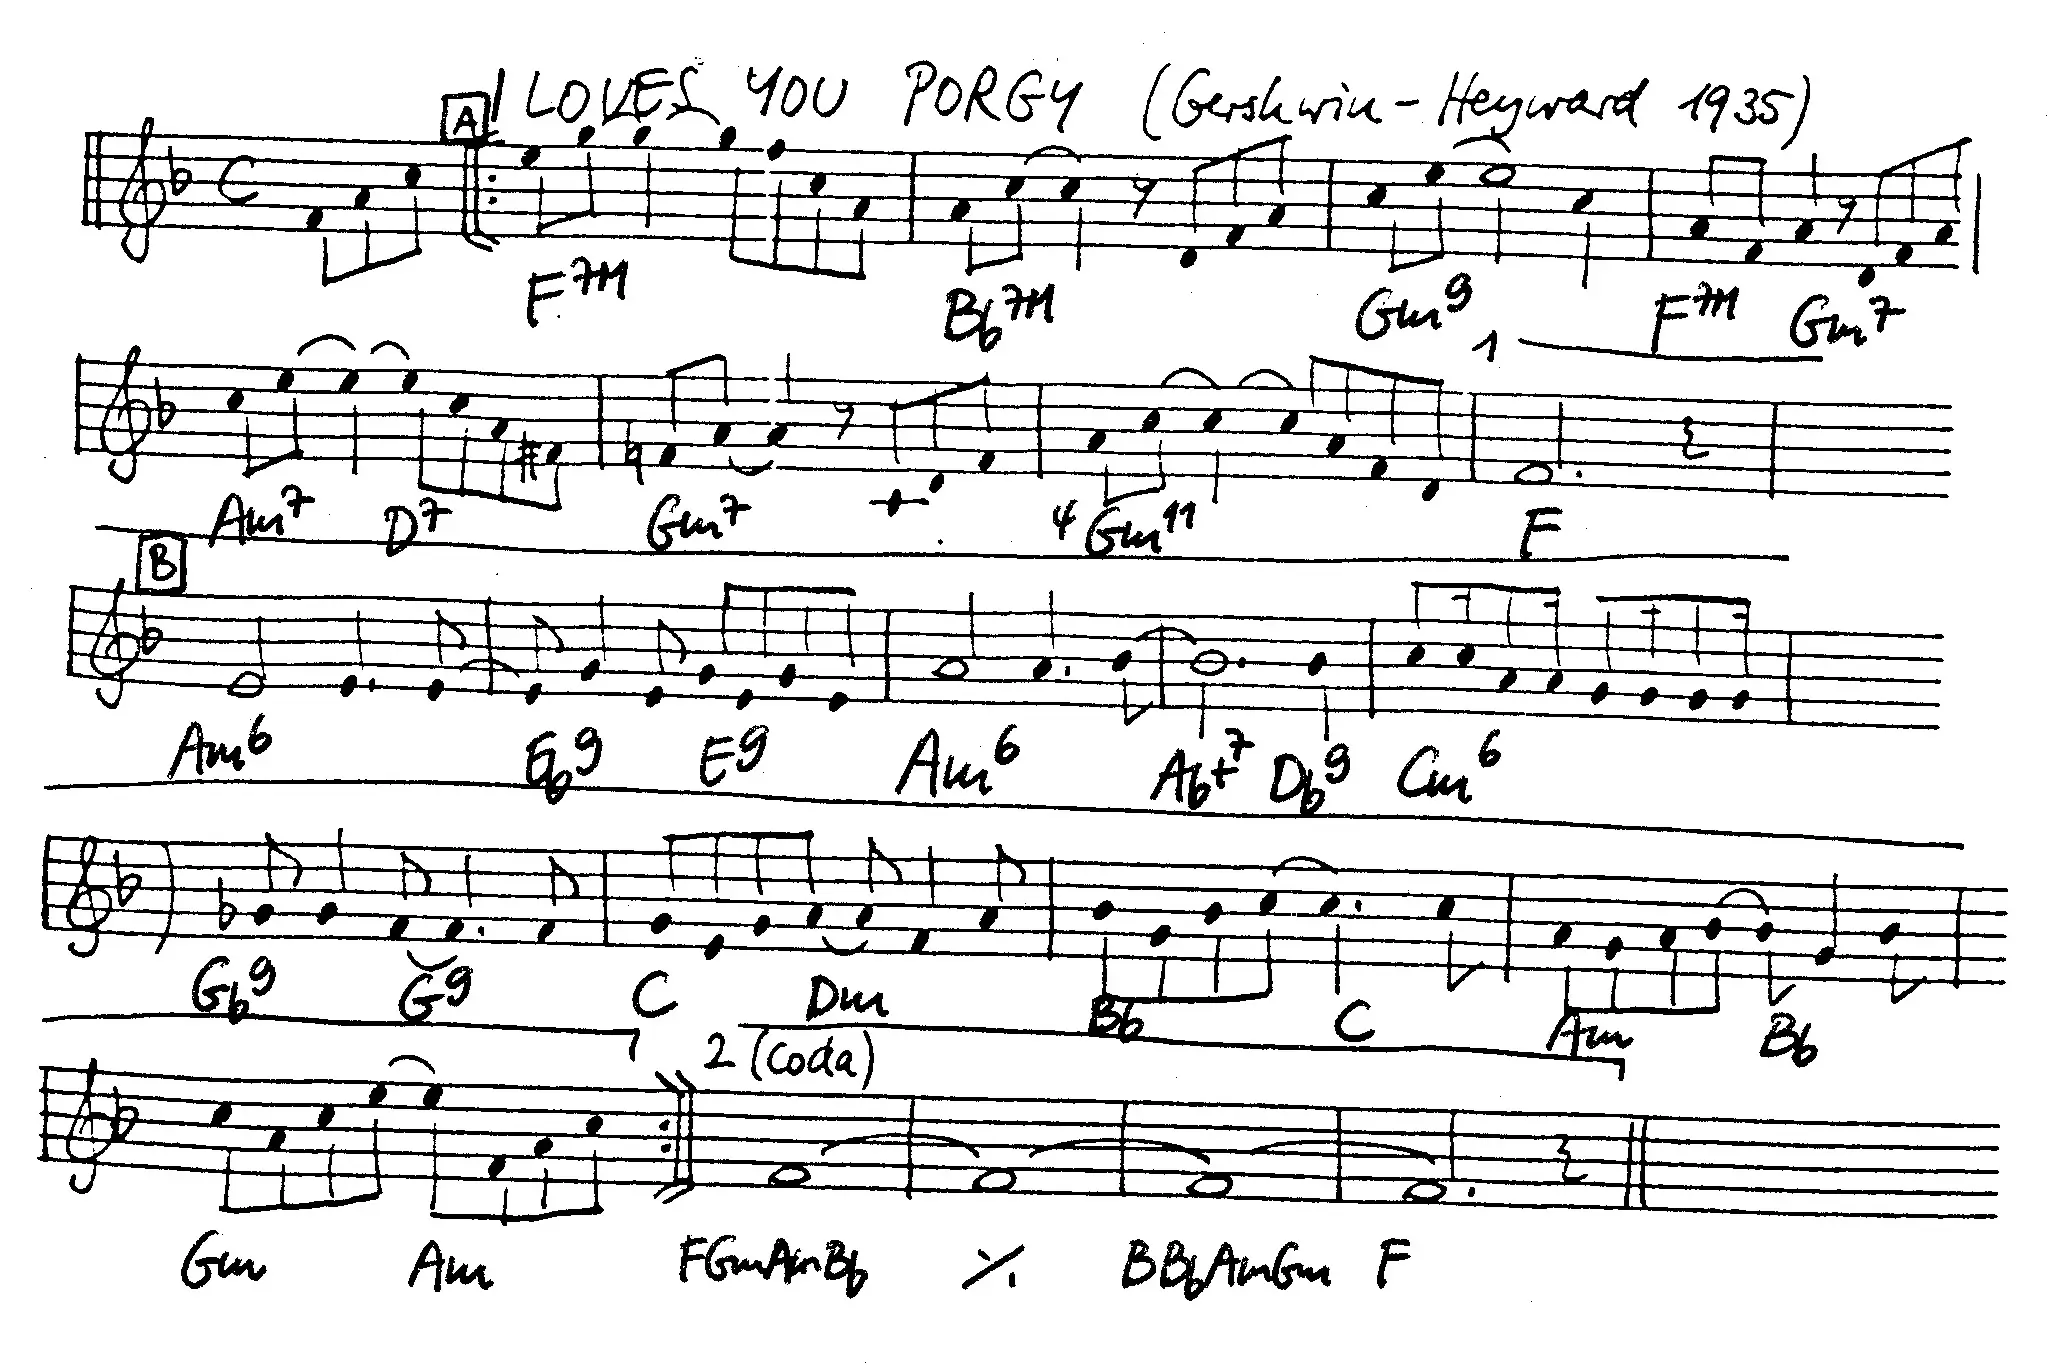 A I LOVES YOU PORGY (Gershwin-Heyward 1935)
F7M Bb7M Gm9 F7M Gm7
1
Am7 D7 Gm7 4 Gm11 F
B
Am6 Eb9 E9 Am6 Ab+7 Db9 Cm6
Gb9 G9 C Dm Bb C Am Bb
2 (Coda)
Gm Am FGmAmBb ٪ BBbAmGm F